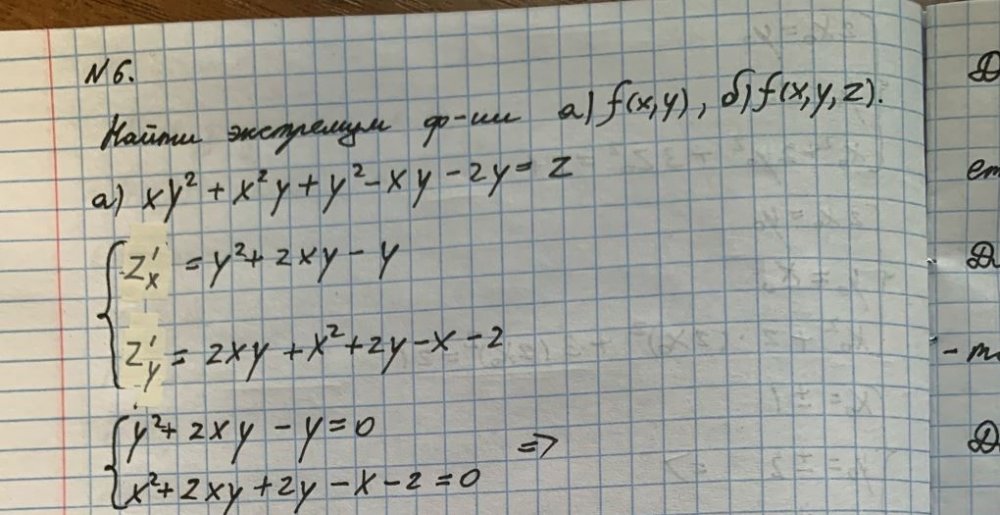 N6.
Найти экстремум ф-ии а) f(x,y), б) f(x,y,z).
а) xy²+x²y+y²-xy-2y=z
z'x = y²+2xy-y
z'y = 2xy+x²+2y-x-2
y²+2xy-y=0 =>
x²+2xy+2y-x-2=0